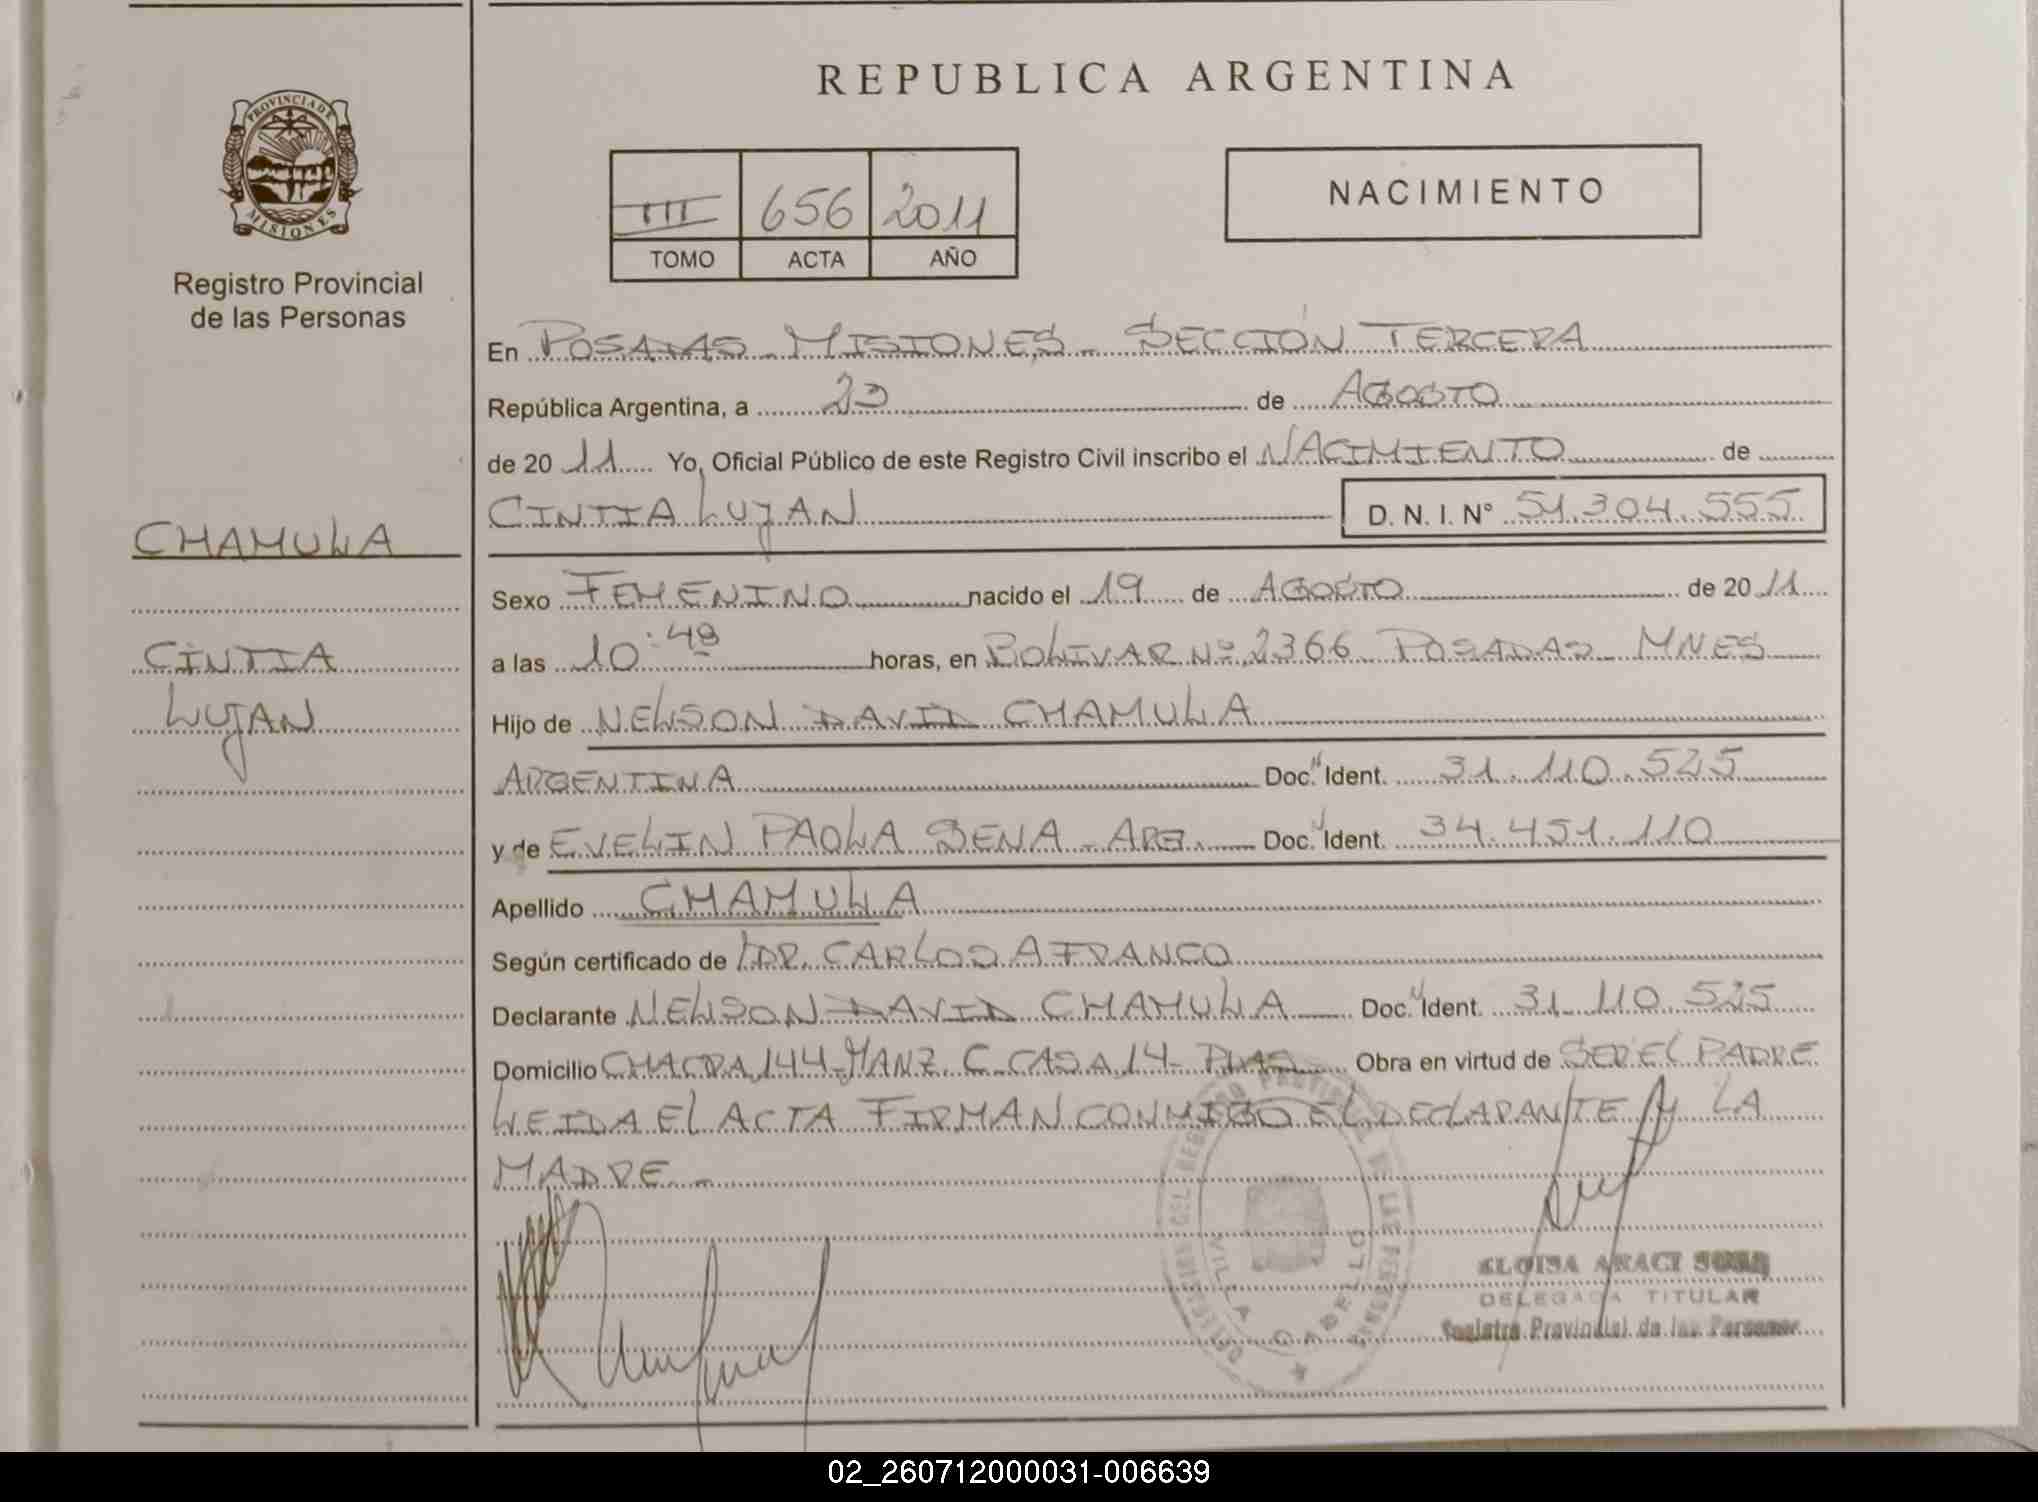 REPUBLICA ARGENTINA
PROVINCIA DE
MISIONES
Registro Provincial
de las Personas
III 656 2011
TOMO ACTA AÑO
NACIMIENTO
En POSADAS - MISIONES - SECCIÓN TERCERA
República Argentina, a 23 de AGOSTO
de 2011 Yo, Oficial Público de este Registro Civil inscribo el NACIMIENTO de
CINTIA LUJAN D. N. I. N° 51.304.555
CHAMULA
CINTIA
LUJAN
Sexo FEMENINO nacido el 19 de AGOSTO de 2011
a las 10:48 horas, en BOLIVAR Nº 2366 POSADAS MNES
Hijo de NELSON DAVID CHAMULA
ARGENTINA Doc. Ident. 31.110.525
y de EVELIN PAOLA SENA - ARG. Doc. Ident. 34.451.110
Apellido CHAMULA
Según certificado de DR. CARLOS A FRANCO
Declarante NELSON DAVID CHAMULA Doc. Ident. 31.110.525
Domicilio CHACRA 144 - MANZ. C. CASA 14 - Obra en virtud de SER EL PADRE
LEIDA EL ACTA FIRMAN CONMIGO EL DECLARANTE Y LA
MADRE.-
VILLA CABELLO
ELOISA ARACI
DELEGADA TITULAR
Registro Provincial de las Personas
02_260712000031-006639